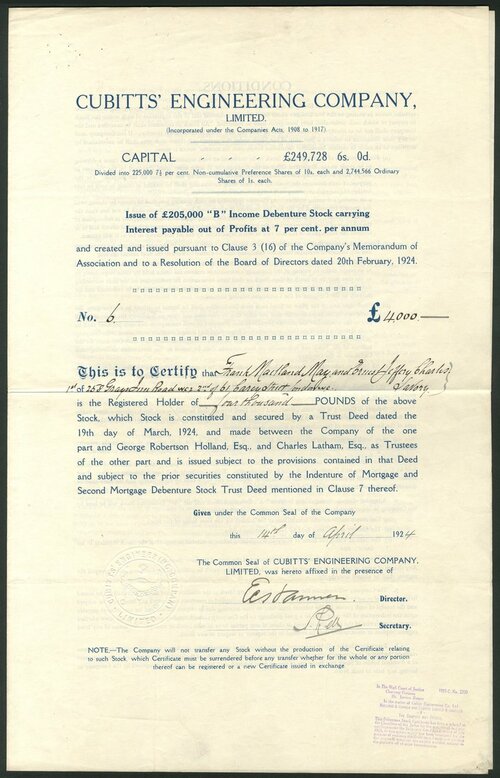 CUBITTS' ENGINEERING COMPANY,
LIMITED.
(Incorporated under the Companies Acts, 1908 to 1917)
CAPITAL . . . £249.728 6s. 0d.
Divided into 225,000 7½ per cent. Non-cumulative Preference Shares of 10s. each and 2,744,566 Ordinary
Shares of 1s. each.
Issue of £205,000 "B" Income Debenture Stock carrying
Interest payable out of Profits at 7 per cent. per annum
and created and issued pursuant to Clause 3 (16) of the Company's Memorandum of
Association and to a Resolution of the Board of Directors dated 20th February, 1924.
No. 6. £4,000
This is to Certify that Frank Maitland May and Ernest Jeffery Charles
1st of 258 Grays Inn Road WC2 2nd of 61 Carey Street Savory
is the Registered Holder of four thousand POUNDS of the above
Stock, which Stock is constituted and secured by a Trust Deed dated the
19th day of March, 1924, and made between the Company of the one
part and George Robertson Holland, Esq., and Charles Latham, Esq., as Trustees
of the other part and is issued subject to the provisions contained in that Deed
and subject to the prior securities constituted by the Indenture of Mortgage and
Second Mortgage Debenture Stock Trust Deed mentioned in Clause 7 thereof.
Given under the Common Seal of the Company
this 14th day of April 1924
The Common Seal of CUBITTS' ENGINEERING COMPANY.
LIMITED, was hereto affixed in the presence of
Director.
Secretary.
NOTE.—The Company will not transfer any Stock without the production of the Certificate relating
to such Stock, which Certificate must be surrendered before any transfer whether for the whole or any portion
thereof can be registered or a new Certificate issued in exchange
In The High Court of Justice
Chancery Division